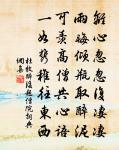 離心忽忽復淒淒
雨晦傾瓶取醉泥
可羨高僧共心語
一如攜稚往東西
杜牧醉後題僧院詞典
網集